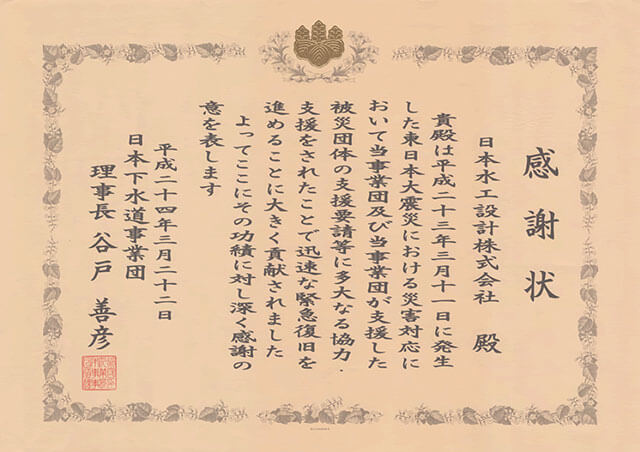 感謝状
日本水工設計株式会社 殿
貴殿は平成二十三年三月十一日に発生
した東日本大震災における災害対応に
おいて当事業団及び当事業団が支援した
被災団体の支援要請等に多大なる協力・
支援をされたことで迅速な緊急復旧を
進めることに大きく貢献されました
よってここにその功績に対し深く感謝の
意を表します
平成二十四年三月二十二日
日本下水道事業団
理事長 谷戸 善彦